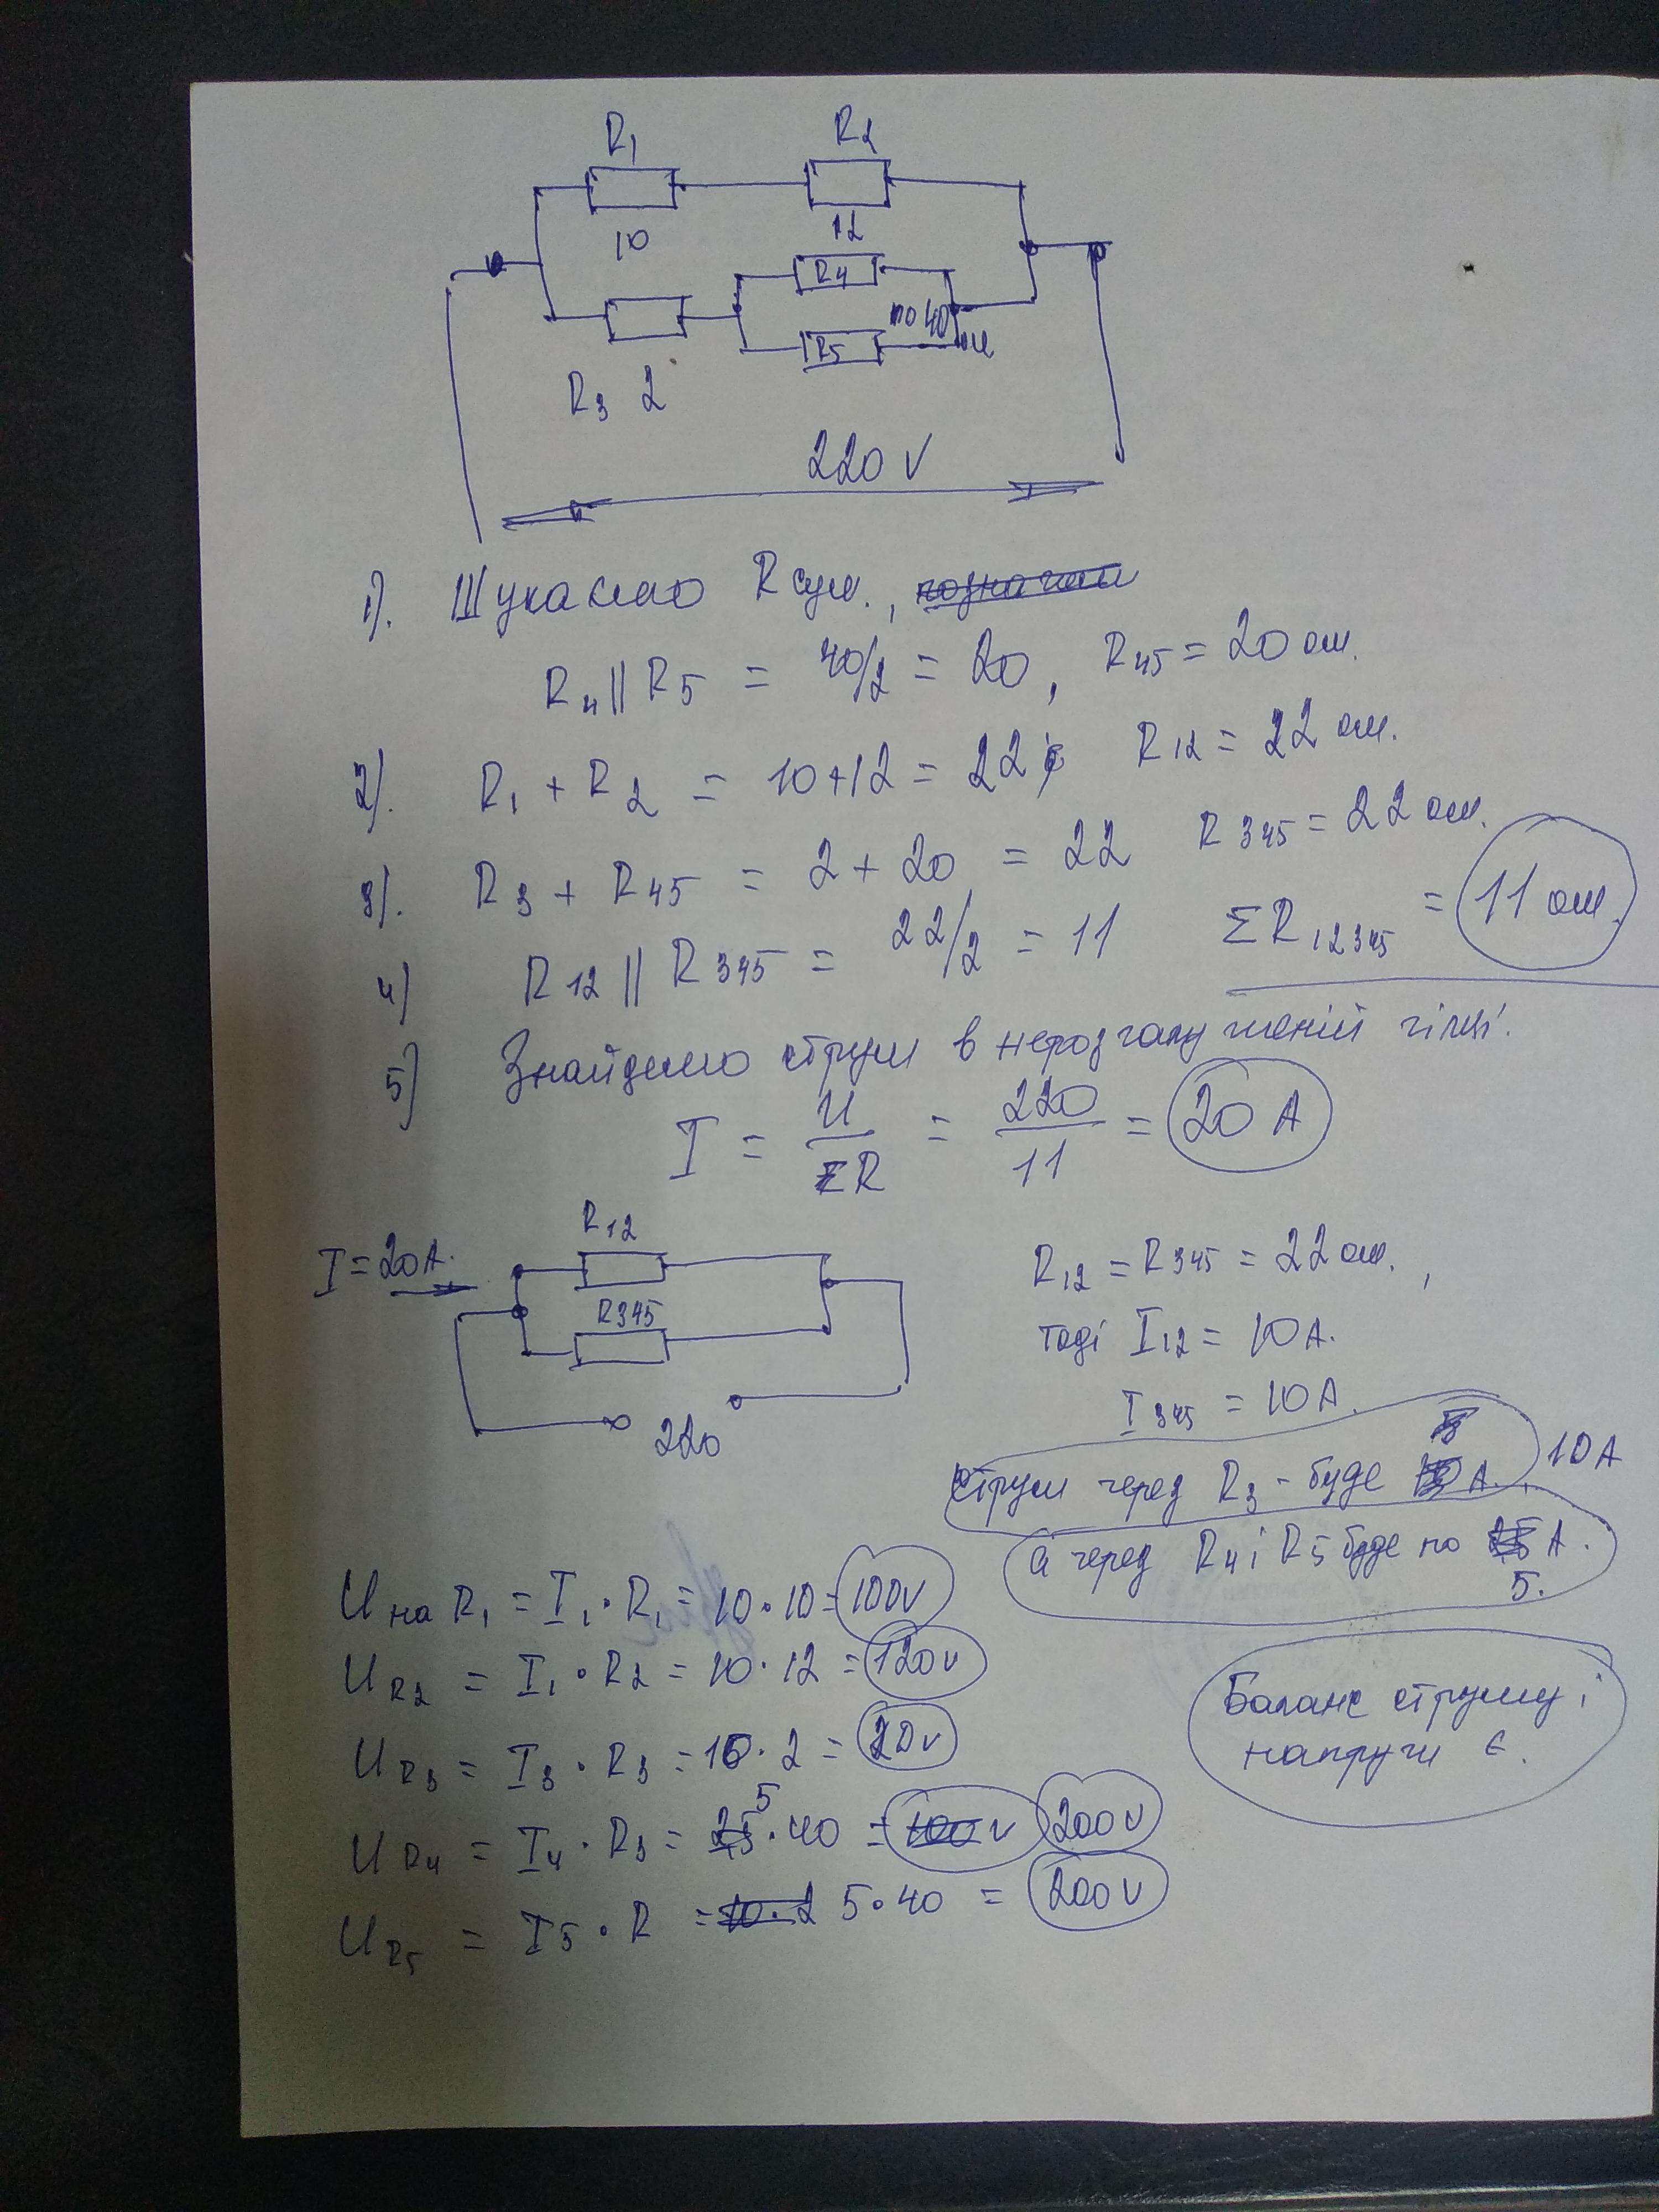 R1 R2
10 12
R4
по 40 ом
R5
R3 2
220 V
1). Шукаємо R сум.,
R4 || R5 = 40/2 = 20, R45 = 20 ом.
2). R1 + R2 = 10+12 = 22 R12 = 22 ом.
3). R3 + R45 = 2 + 20 = 22 R345 = 22 ом.
4) R12 || R345 = 22/2 = 11 ΣR12345 = 11 ом.
5) Знайдемо струм в нерозгалуженій гілці.
I = U/ΣR = 220/11 = 20 A
R12
I = 20A.
R345
220
R12 = R345 = 22 ом.,
тоді I12 = 10A.
I345 = 10A.
струм через R3 - буде A. 10A
а через R4 і R5 буде по A.
5.
U на R1 = I1 · R1 = 10 · 10 = 100v
UR2 = I1 · R2 = 10 · 12 = 120v
UR3 = I3 · R3 = 10 · 2 = 20v
UR4 = I4 · R3 = 5 · 40 = 200v
UR5 = I5 · R = 5 · 40 = 200v
Баланс струму і
напруги є.